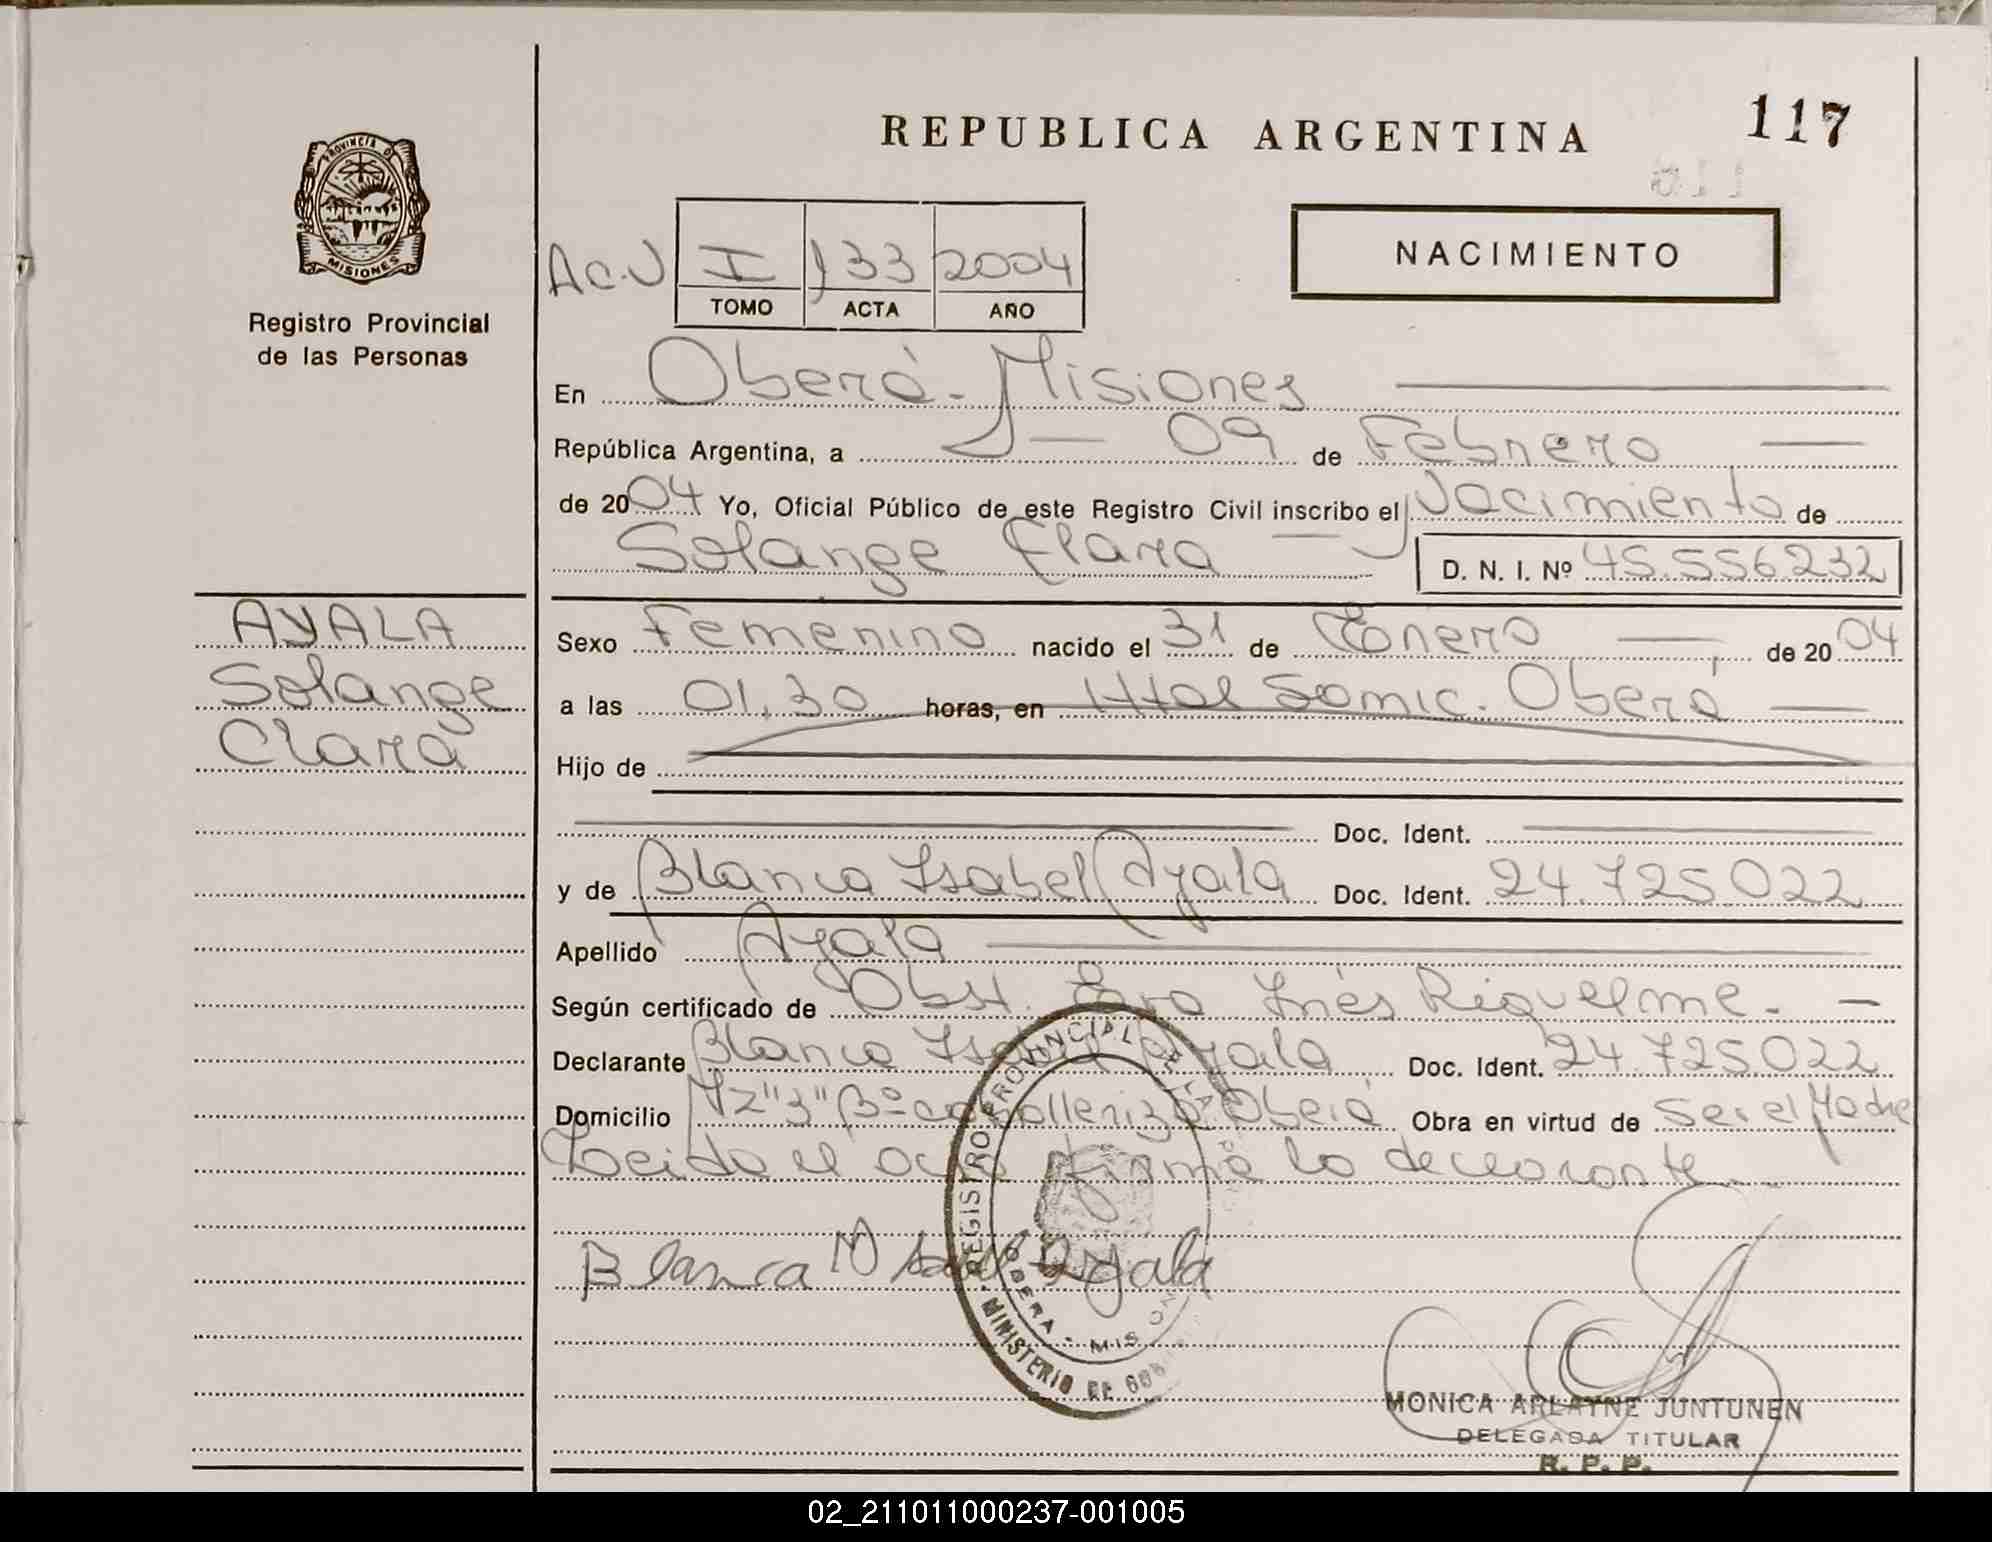 REPUBLICA ARGENTINA
117
PROVINCIA DE
MISIONES
Registro Provincial
de las Personas
Ac.N I 133 2004
TOMO ACTA AÑO
NACIMIENTO
En Oberá - Misiones
República Argentina, a 09 de Febrero
de 2004 Yo, Oficial Público de este Registro Civil inscribo el Nacimiento de
Solange Clara
D. N. I. Nº 45.556232
AYALA
Solange
Clara
Sexo Femenino nacido el 31 de Enero de 2004
a las 01,30 horas, en Htal Samic. Oberá
Hijo de
Doc. Ident.
y de Blanca Isabel Ayala Doc. Ident. 24.725.022
Apellido Ayala
Según certificado de Obst. Inés Riquelme.
Declarante Blanca Isabel Ayala Doc. Ident. 24.725.022
Domicilio Mz "3" Bº caballeriza Oberá Obra en virtud de ser el Madre
Leida el acta firma la declarante
Blanca Ysabel Ayala
REGISTRO PROVINCIAL DE LA
OBERA - MISIONES
MINISTERIO DE GOB
MONICA ARLAYNE JUNTUNEN
DELEGADA TITULAR
R. P. P.
02_211011000237-001005